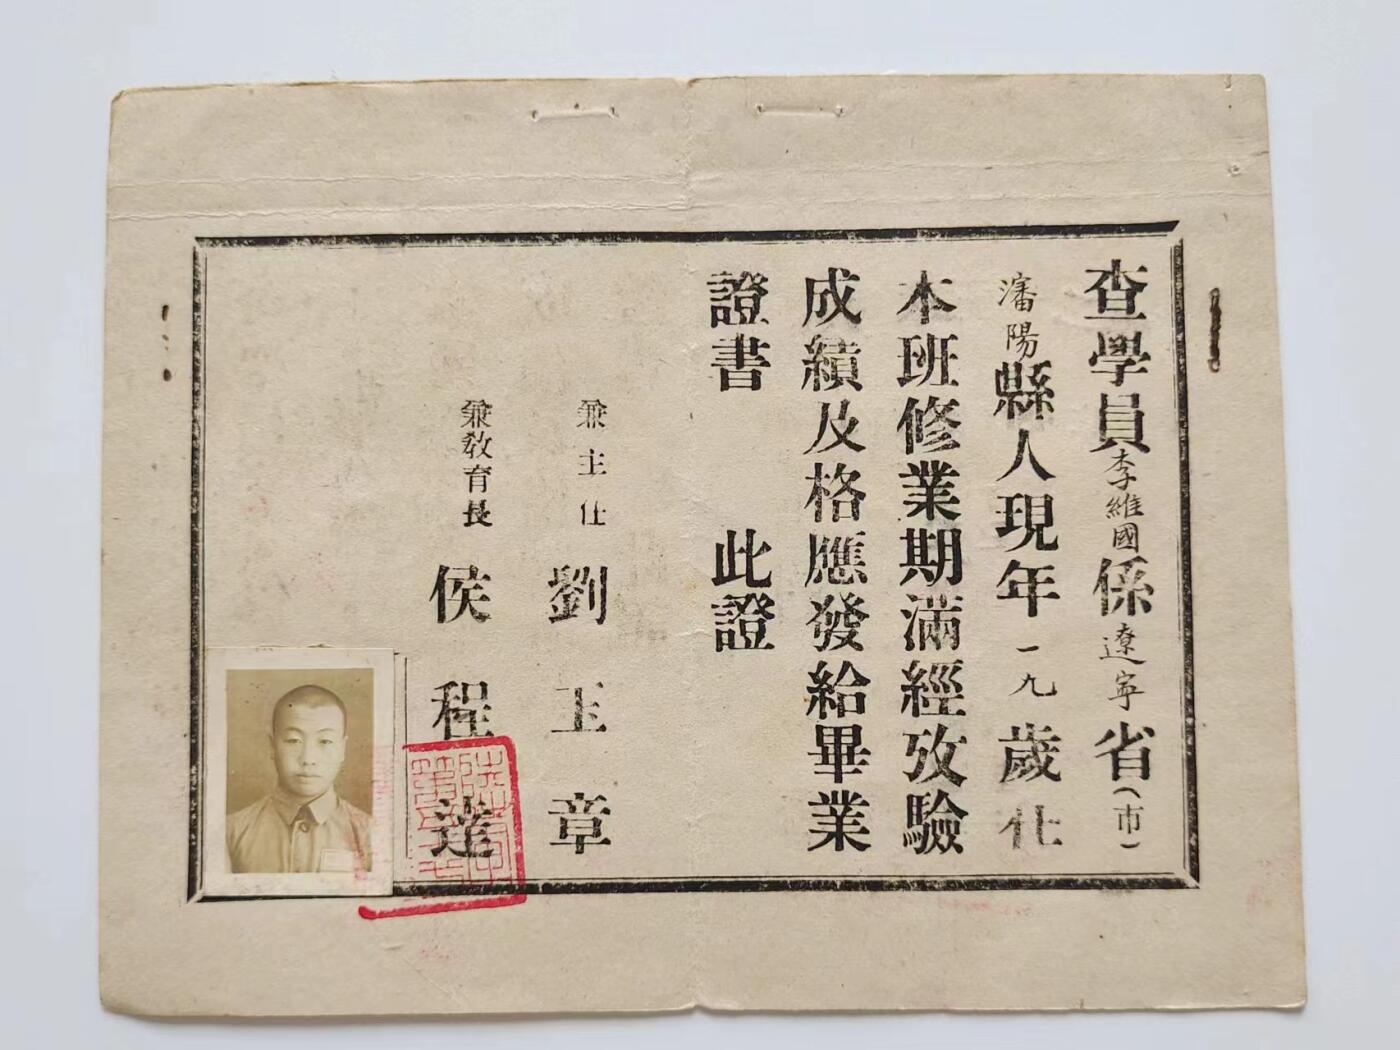 查學員李維國係遼寧省(市)
瀋陽縣人現年一九歲化
本班修業期滿經攷驗
成績及格應發給畢業
證書　此證
兼主任　劉玉章
兼教育長　侯程達